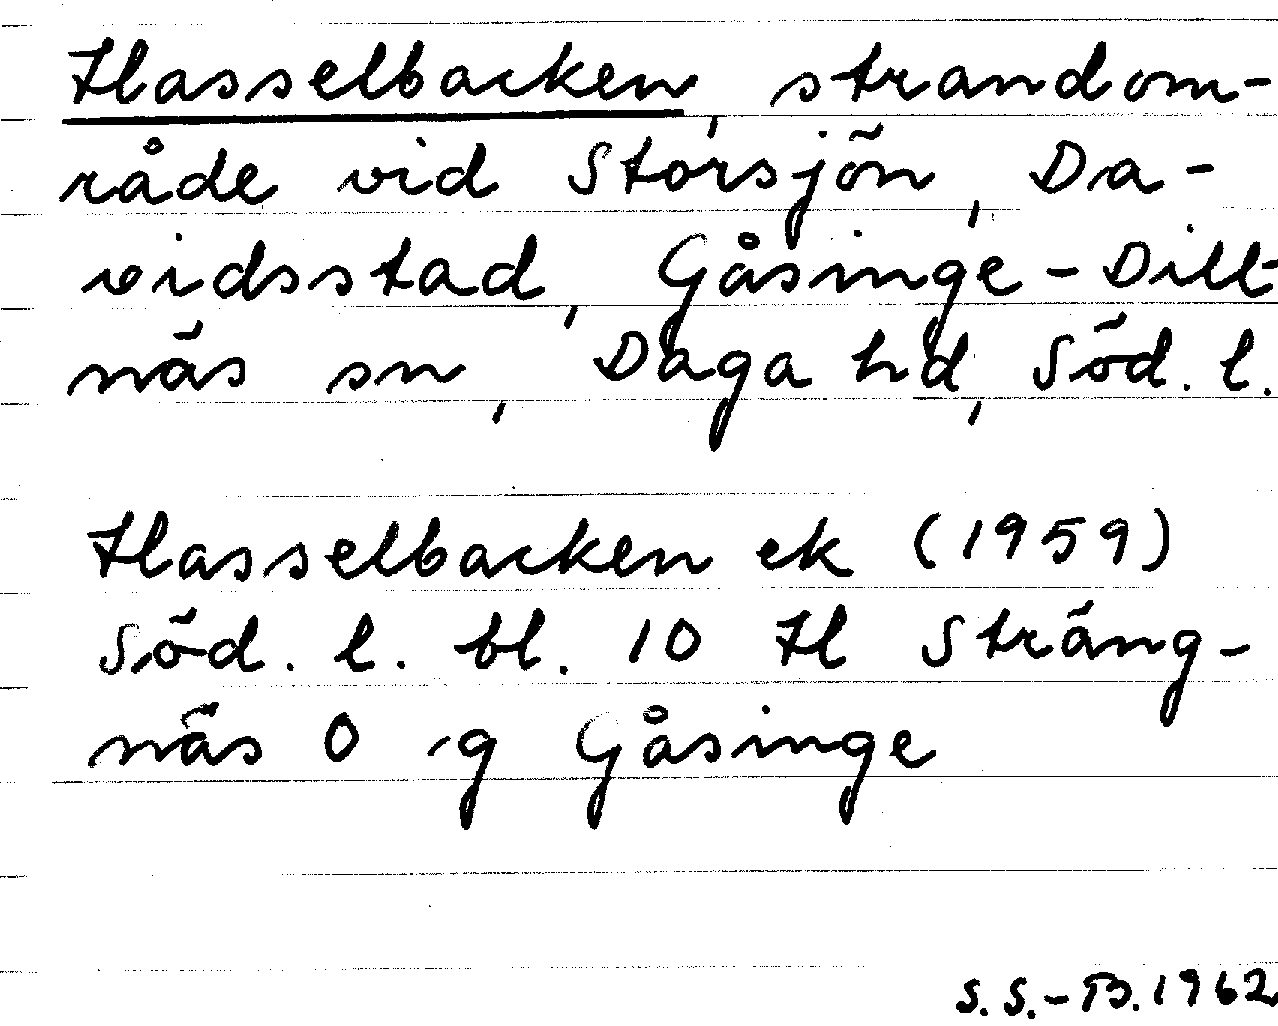 Hasselbacken, strandom-
råde vid Storsjön, Da-
vidsstad, Gåsinge-Dill-
näs sn, Daga hd, Söd. l.
Hasselbacken ek (1959)
Söd. l. bl. 10 H Sträng-
näs O g Gåsinge
S.S.-B. 1962